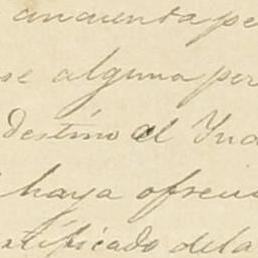 cincuenta pe
se alguna per
destino el Ind
haya ofreci
rtificado dela